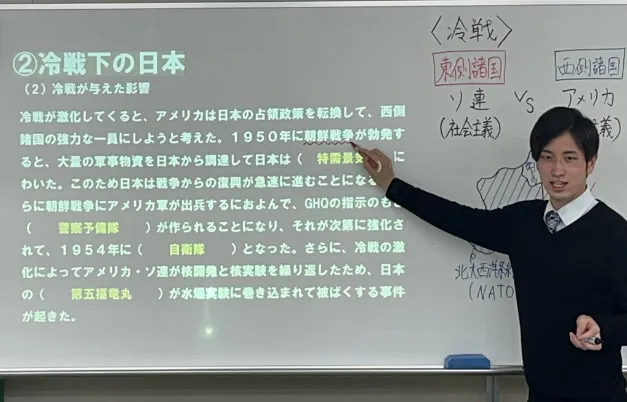 ②冷戦下の日本
（2）冷戦が与えた影響
冷戦が激化してくると、アメリカは日本の占領政策を転換して、西側
諸国の強力な一員にしようと考えた。1950年に朝鮮戦争が勃発す
ると、大量の軍事物資を日本から調達して日本は（ 特需景 に
わいた。このため日本は戦争からの復興が急速に進むことにな
らに朝鮮戦争にアメリカ軍が出兵するにおよんで、GHQの指示のも
（ 警察予備隊 ）が作られることになり、それが次第に強化さ
れて、1954年に（ 自衛隊 ）となった。さらに、冷戦の激
化によってアメリカ・ソ連が核開発と核実験を繰り返したため、日本
の（ 第五福竜丸 ）が水爆実験に巻き込まれて被ばくする事件
が起きた。
〈冷戦〉
東側諸国 西側諸国
ソ連 VS アメリカ
(社会主義) 義)
北大西洋条約
(NATO